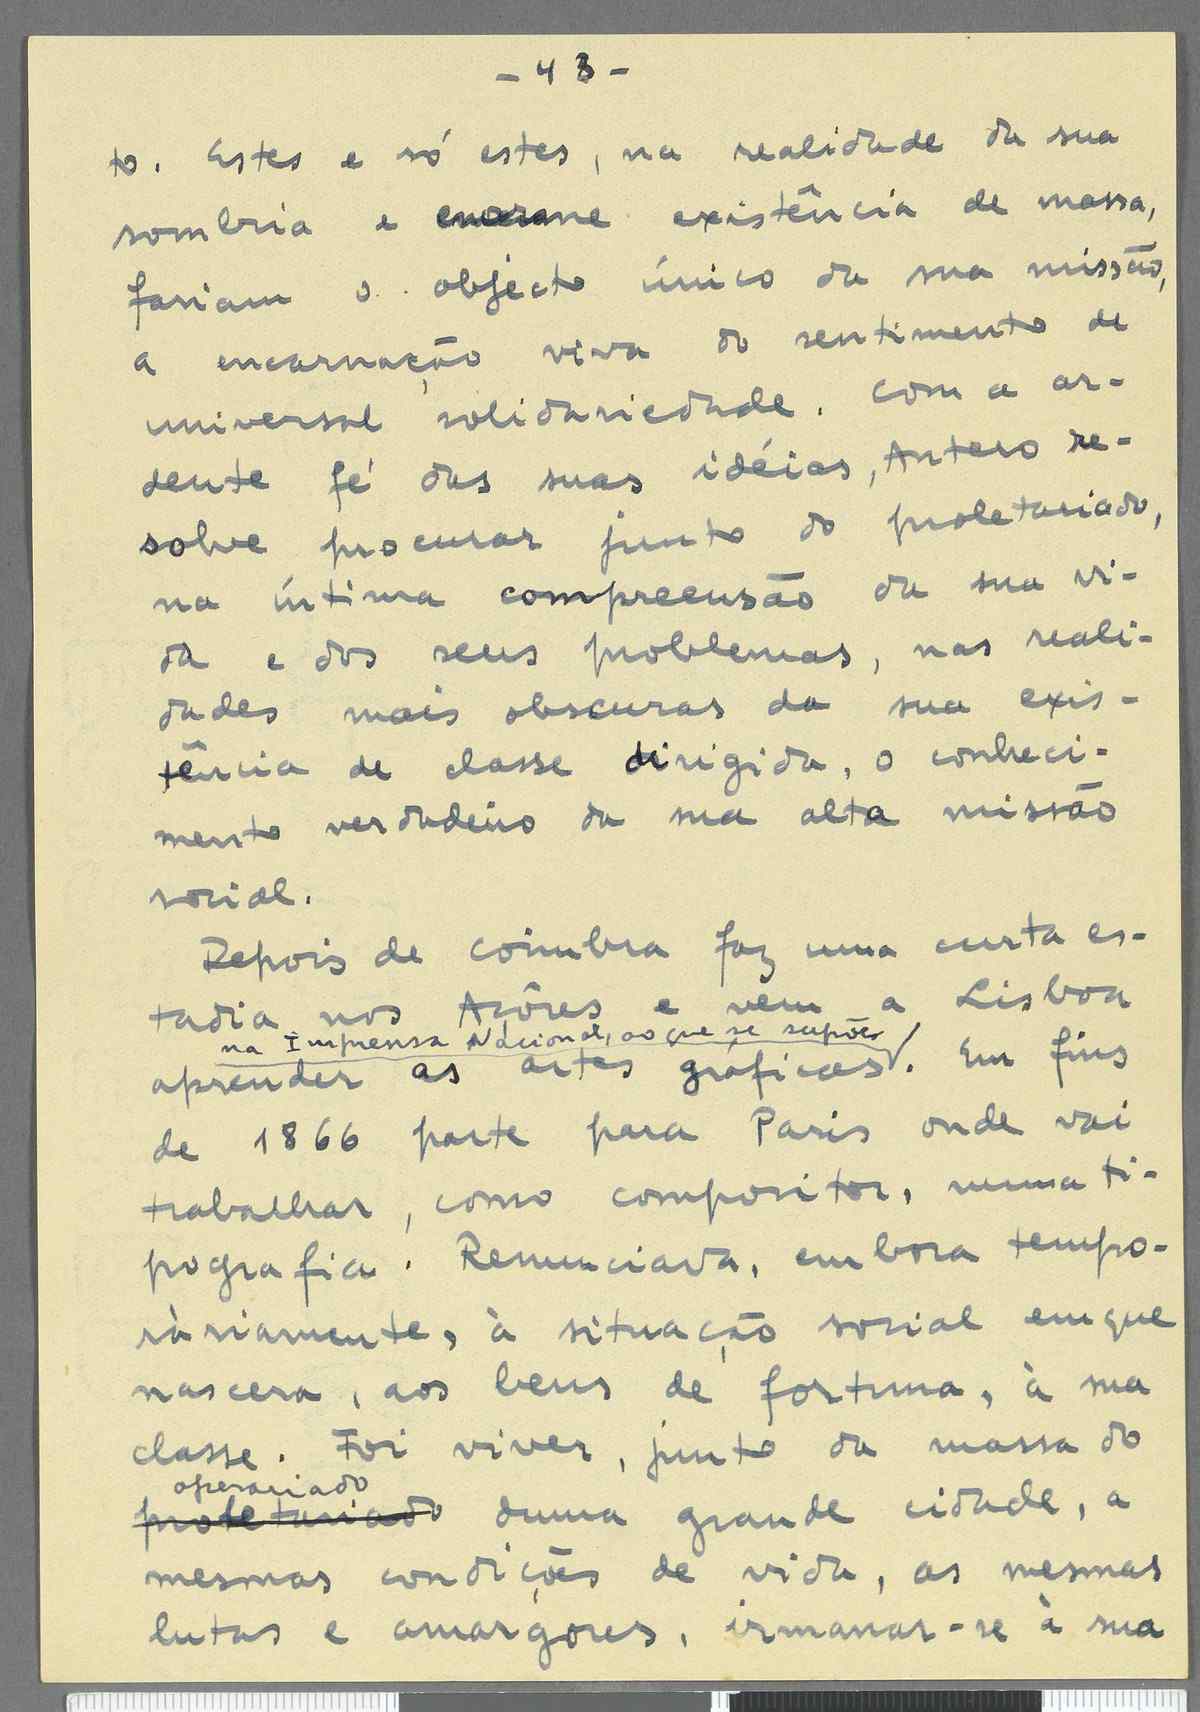 - 43 -
to. Estes e só estes, na realidade da sua
sombria e enorme existência de massa,
fariam o objecto único da sua missão,
a encarnação viva do sentimento de
universal solidariedade. Com a ar-
dente fé das suas idéias, Antero re-
solve procurar junto do proletariado,
na íntima compreensão da sua vi-
da e dos seus problemas, nas reali-
dades mais obscuras da sua exis-
tência de classe dirigida, o conheci-
mento verdadeiro da sua alta missão
social.
Depois de Coimbra faz uma curta es-
tadia nos Açôres e vem a Lisboa
na Imprensa Nacional, ao que se supões
aprender as artes gráficas. Em fins
de 1866 parte para Paris onde vai
trabalhar, como compositor, numa ti-
pografia. Renunciava, embora tempo-
ràriamente, à situação social em que
nascera, aos bens de fortuna, à sua
classe. Foi viver, junto da massa do
operariado
proletariado duma grande cidade, a
mesmas condições de vida, as mesmas
lutas e amargores, irmanar-se à sua